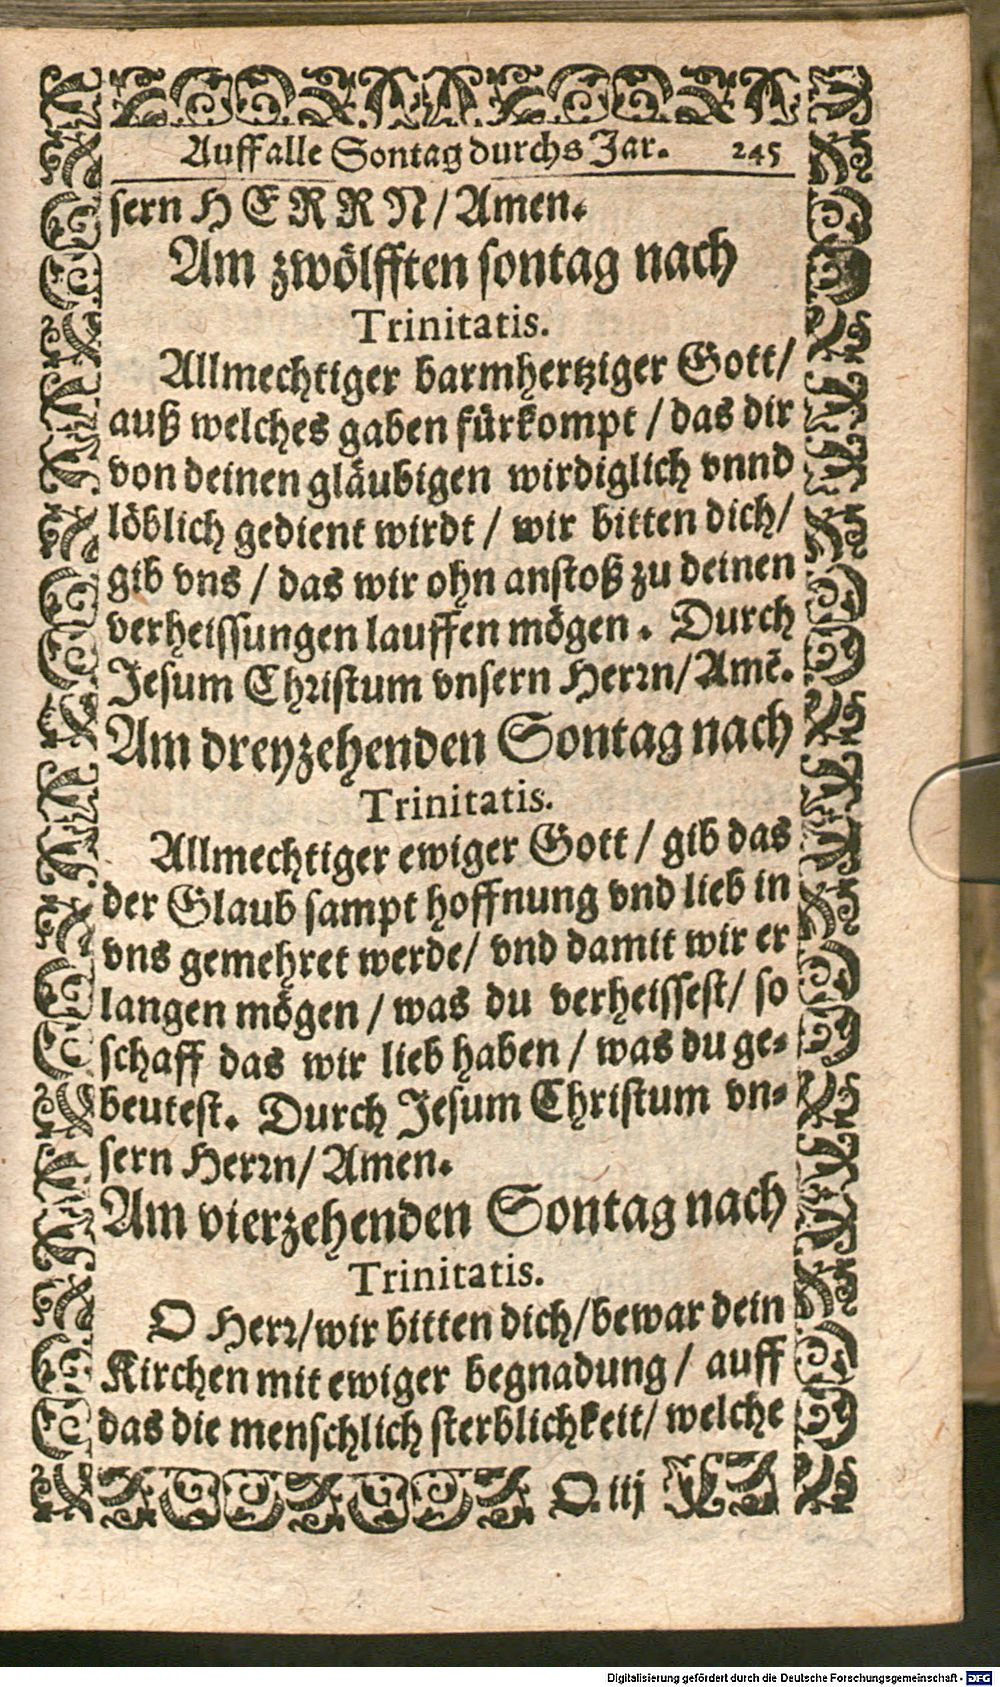 Auff alle Sontag durchs Jar. 245
sern HERRN/ Amen.
Am zwölfften sontag nach
Trinitatis.
Allmechtiger barmhertziger Gott/
auß welches gaben fürkompt / das dir
von deinen gläubigen wirdiglich vnnd
löblich gedient wirdt / wir bitten dich/
gib vns / das wir ohn anstoß zu deinen
verheissungen lauffen mögen. Durch
Jesum Christum vnsern Herrn/ Amẽ.
Am dreyzehenden Sontag nach
Trinitatis.
Allmechtiger ewiger Gott / gib das
der Glaub sampt hoffnung vnd lieb in
vns gemehret werde/ vnd damit wir er
langen mögen / was du verheissest/ so
schaff das wir lieb haben / was du ge-
beutest. Durch Jesum Christum vn-
sern Herrn/ Amen.
Am vierzehenden Sontag nach
Trinitatis.
O Herr/ wir bitten dich/ bewar dein
Kirchen mit ewiger begnadung / auff
das die menschlich sterblichkeit/ welche
O. iij
Digitalisierung gefördert durch die Deutsche Forschungsgemeinschaft - DFG